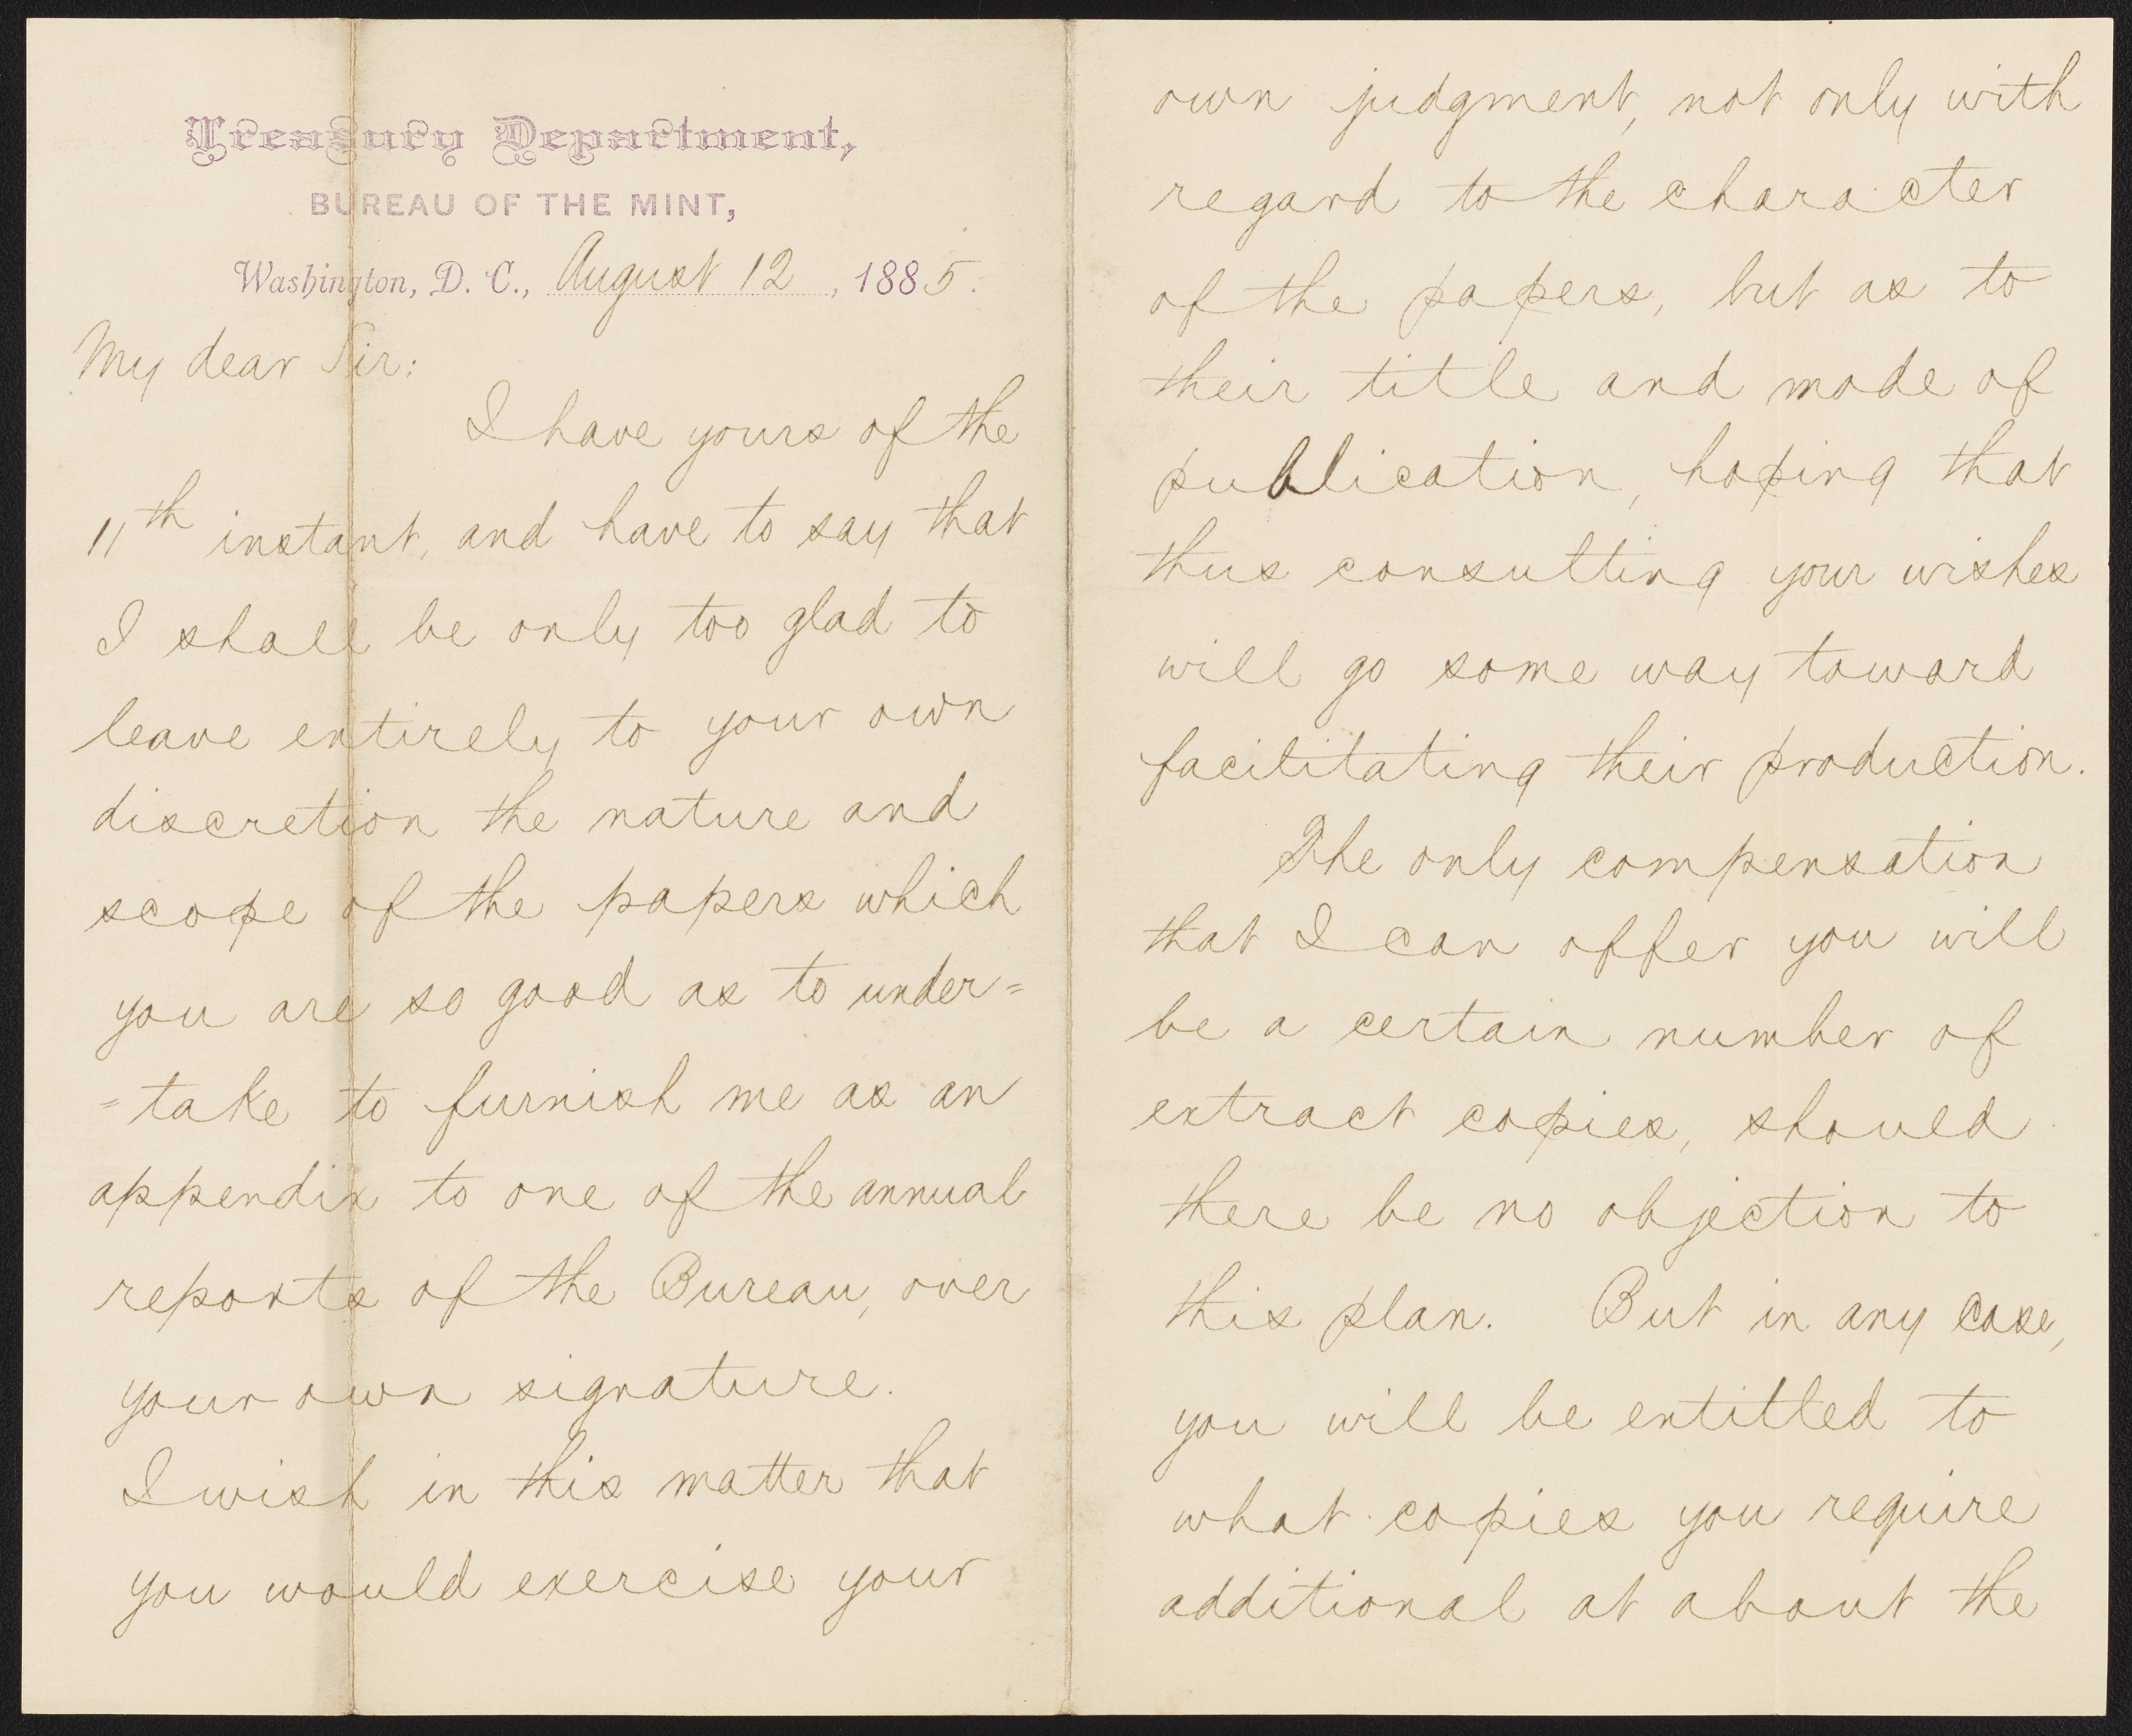 Treasury Department,
BUREAU OF THE MINT,
Washington, D. C., August 12, 1885.
My dear Sir:
I have yours of the
11th instant, and have to say that
I shall be only too glad to
leave entirely to your own
discretion the nature and
scope of the papers which
you are so good as to under=
=take to furnish me as an
appendix to one of the annual
reports of the Bureau, over
your own signature.
I wish in this matter that
you would exercise your
own judgment, not only with
regard to the character
of the papers, but as to
their title and mode of
publication, hoping that
thus consulting your wishes
will go some way toward
facilitating their production.
The only compensation
that I can offer you will
be a certain number of
extract copies, should
there be no objection to
this plan. But in any case,
you will be entitled to
what copies you require
additional at about the